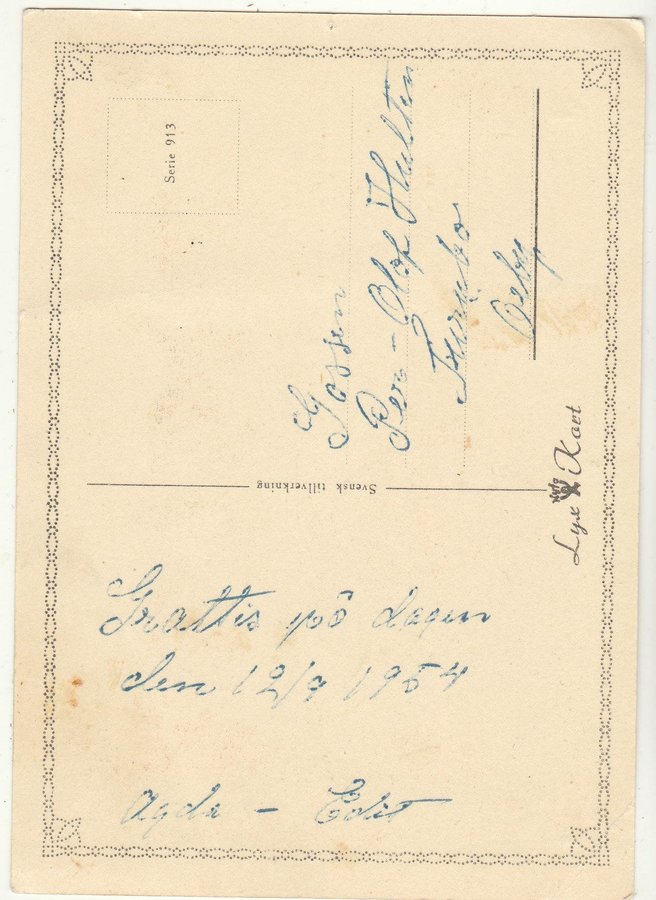 Serie 913
Gossen
Per-Olof Hultén
Furubo
Örby
Svensk tillverkning
Lyx Kort
Grattis på dagen
den 12/9 1954
Agda - Edit